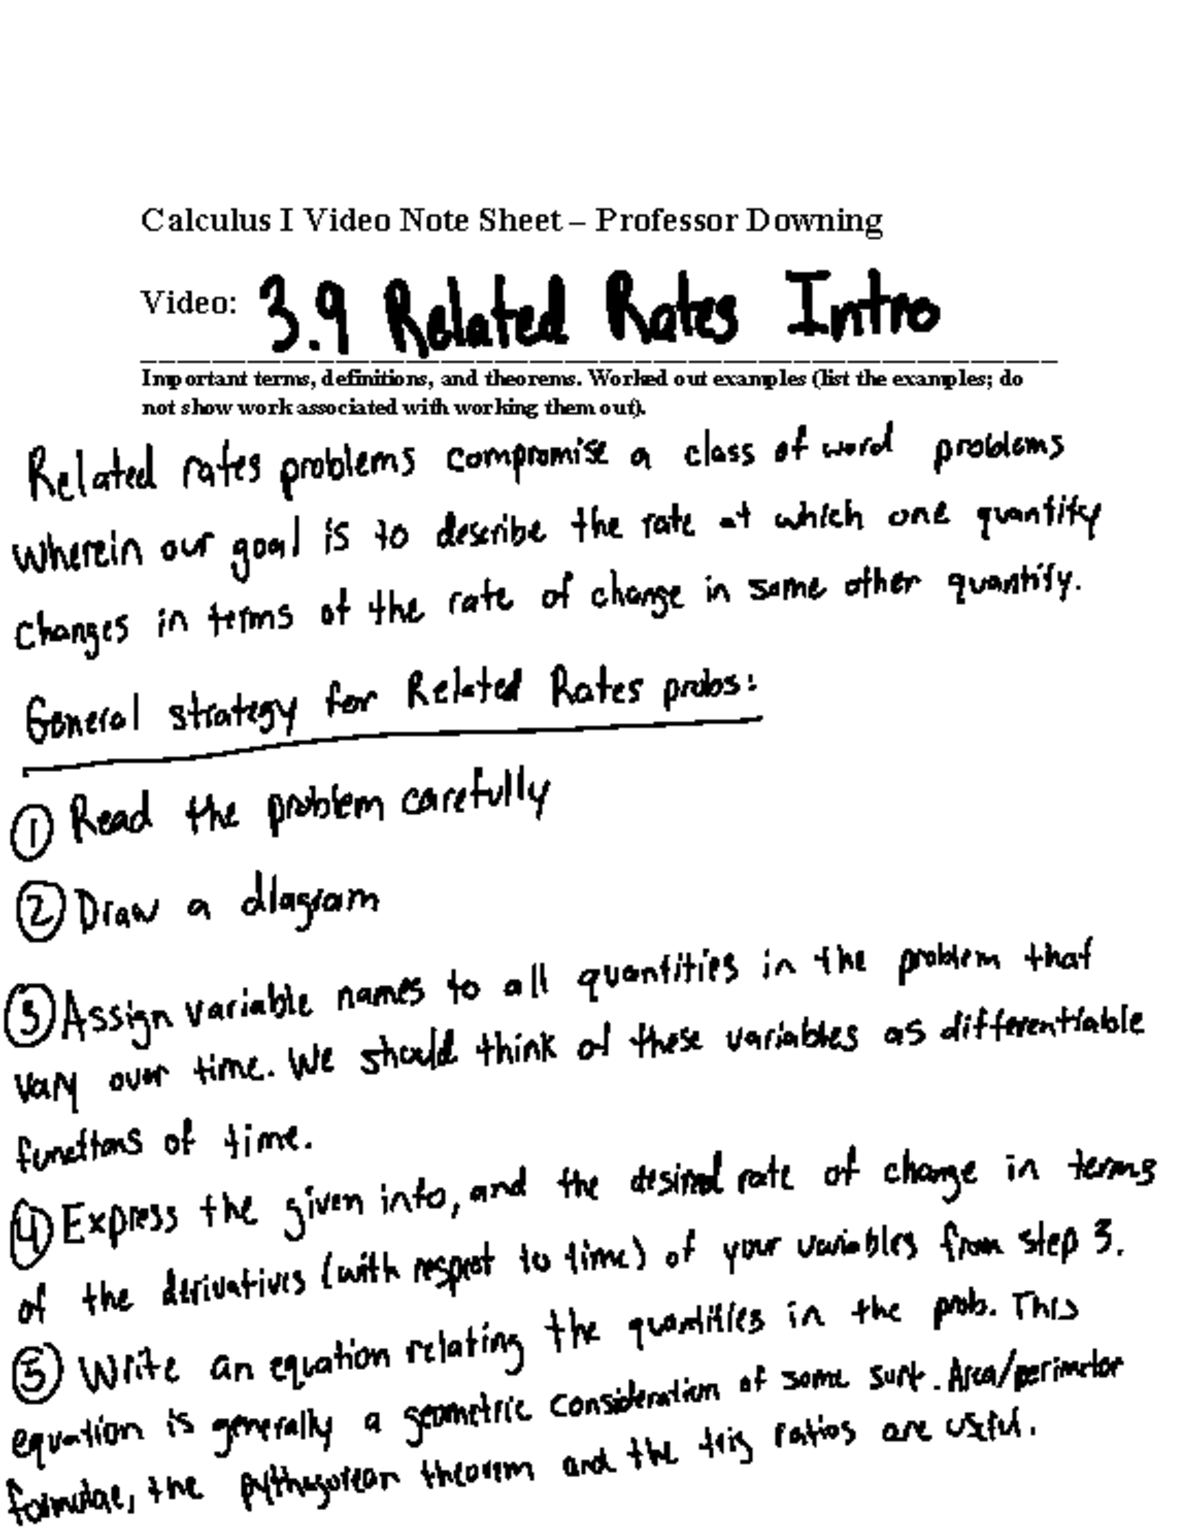 Calculus I Video Note Sheet – Professor Downing
Video: 3.9 Related Rates Intro
Important terms, definitions, and theorems. Worked out examples (list the examples; do
not show work associated with working them out).
Related rates problems compromise a class of word problems
wherein our goal is to describe the rate at which one quantity
changes in terms of the rate of change in some other quantity.
General strategy for Related Rates probs:
① Read the problem carefully
② Draw a diagram
③ Assign variable names to all quantities in the problem that
vary over time. We should think of these variables as differentiable
functions of time.
④ Express the given info, and the desired rate of change in terms
of the derivatives (with respect to time) of your variables from step 3.
⑤ Write an equation relating the quantities in the prob. This
equation is generally a geometric consideration of some sort. Area/perimeter
formulae, the pythagorean theorem and the trig ratios are useful.